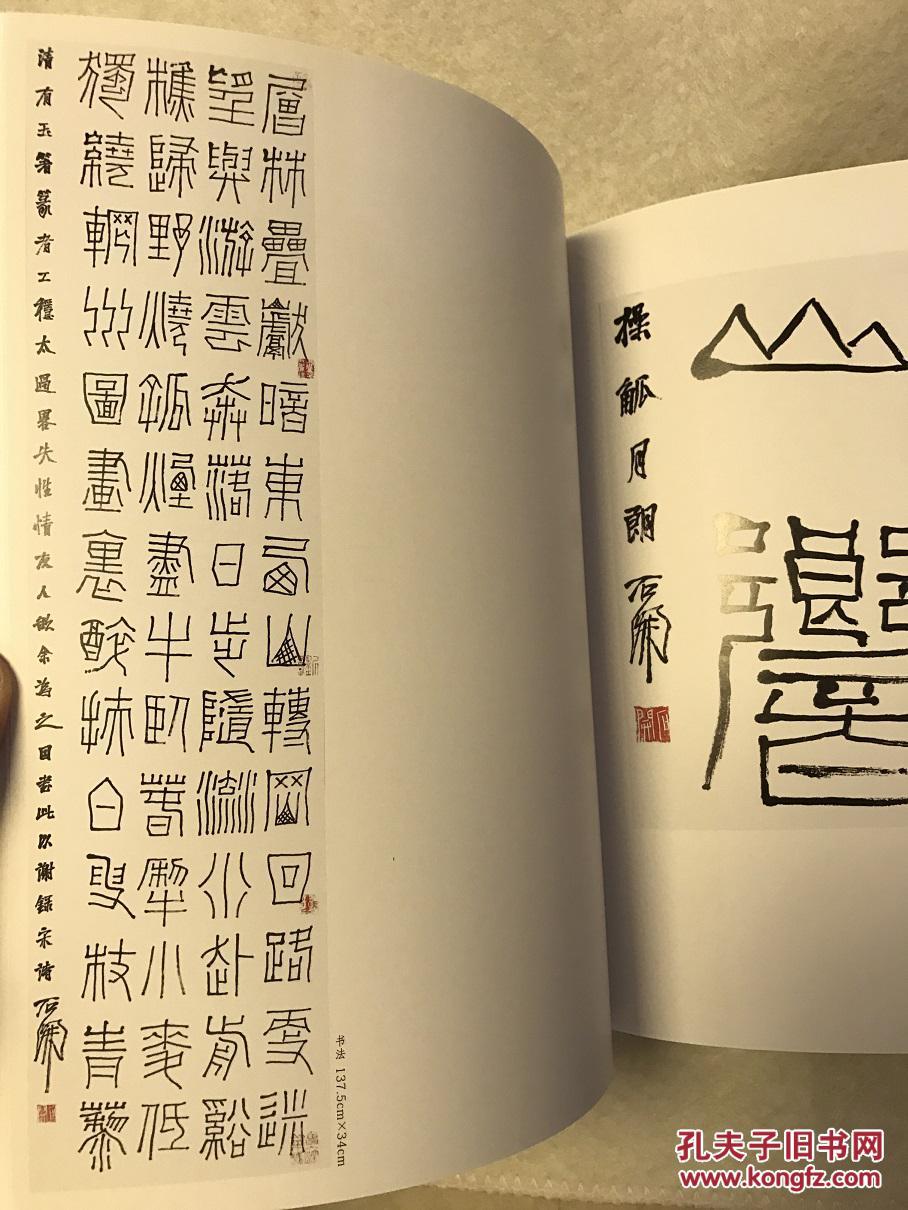 層林疊巘暗東西山轉岡回路更迷
望與游雲奔落日步隨流水赴前谿
樵歸野燒孤煙盡牛臥春犁小麥低
獨繞輞川圖畫裏醉扶白叟杖青藜
清有玉箸篆者工穩太過畧失性情友人欲余為之因書此以謝錄宋詩 石開
书法 137.5cm×34cm
操觚月朗 石開
孔夫子旧书网
www.kongfz.com